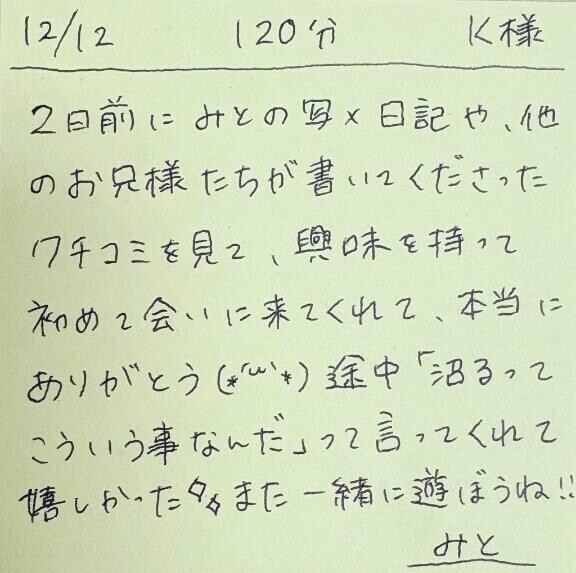 12/12 120分 K様
2日前にみとの写メ日記や、他
のお兄様たちが書いてくださった
クチコミを見て、興味を持って
初めて会いに来てくれて、本当に
ありがとう(*´ω`*)途中「沼るって
こういう事なんだ」って言ってくれて
嬉しかった💕また一緒に遊ぼうね!!
みと